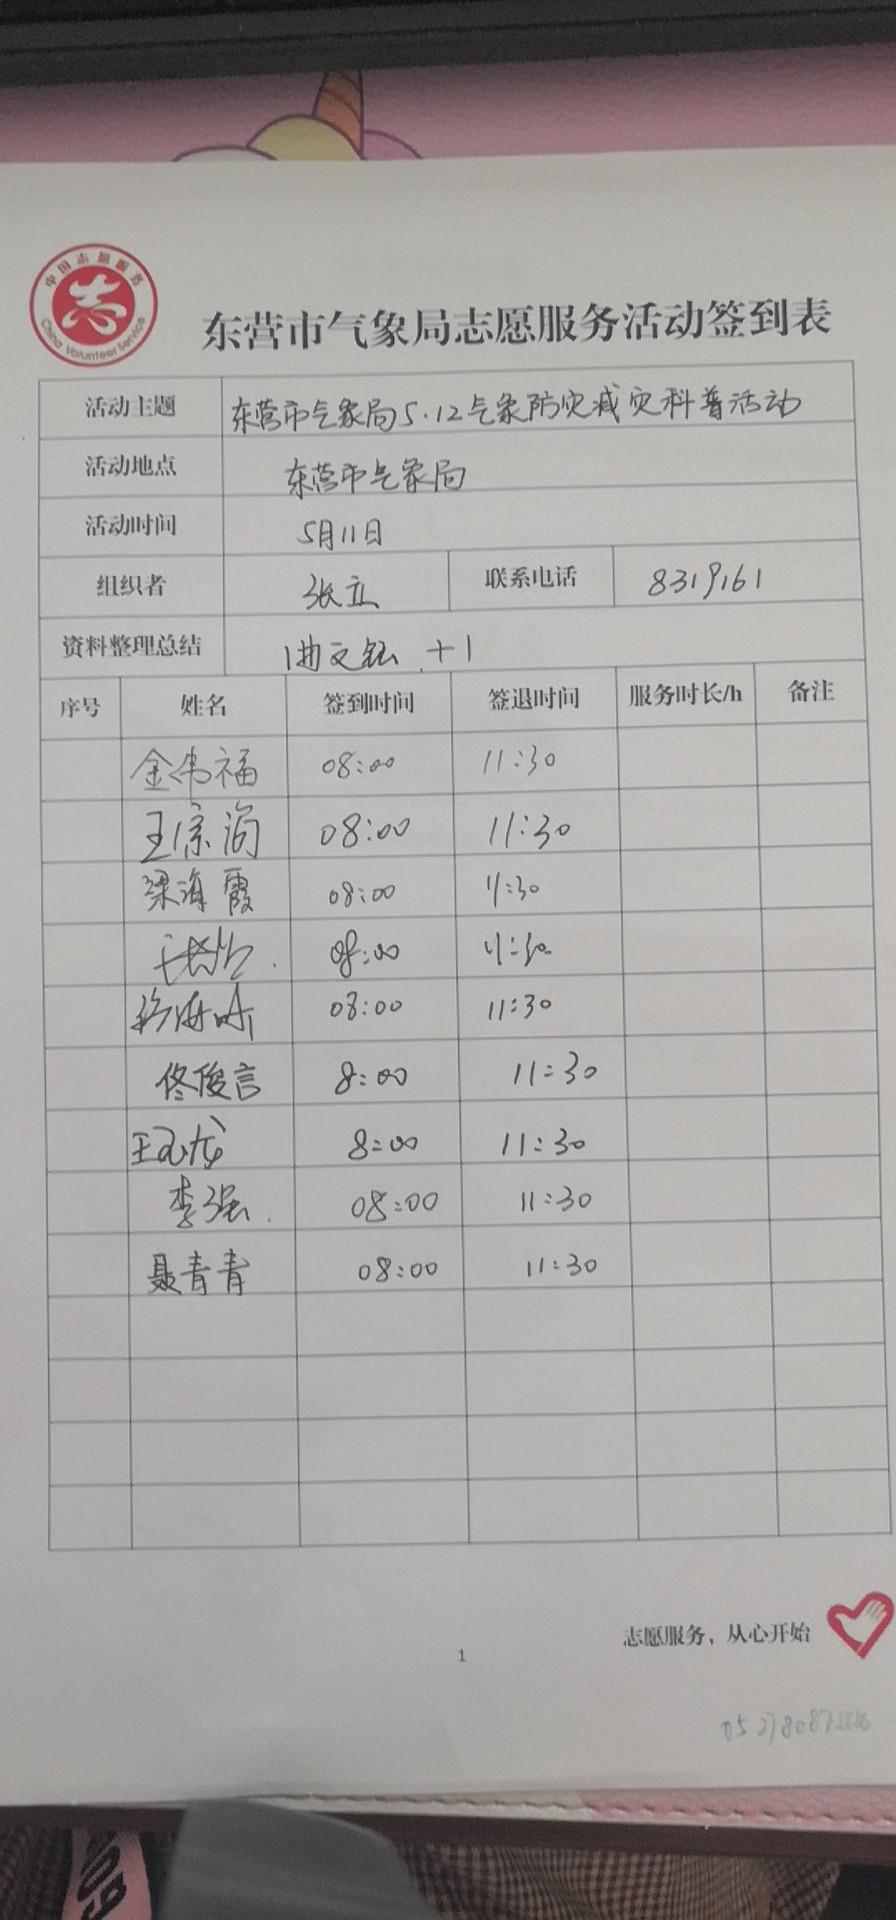 中国志愿服务
志
China Volunteer Service
东营市气象局志愿服务活动签到表
活动主题 东营市气象局5.12气象防灾减灾科普活动
活动地点 东营市气象局
活动时间 5月11日
组织者 张立 联系电话 8319161
资料整理总结 曲文 +1
序号 姓名 签到时间 签退时间 服务时长/h 备注
金伟福 08:00 11:30
王宗 08:00 11:30
梁海霞 08:00 11:30
08:00 11:30
08:00 11:30
佟俊言 8:00 11:30
王 龙 8:00 11:30
李强 08:00 11:30
聂青青 08:00 11:30
志愿服务，从心开始
1